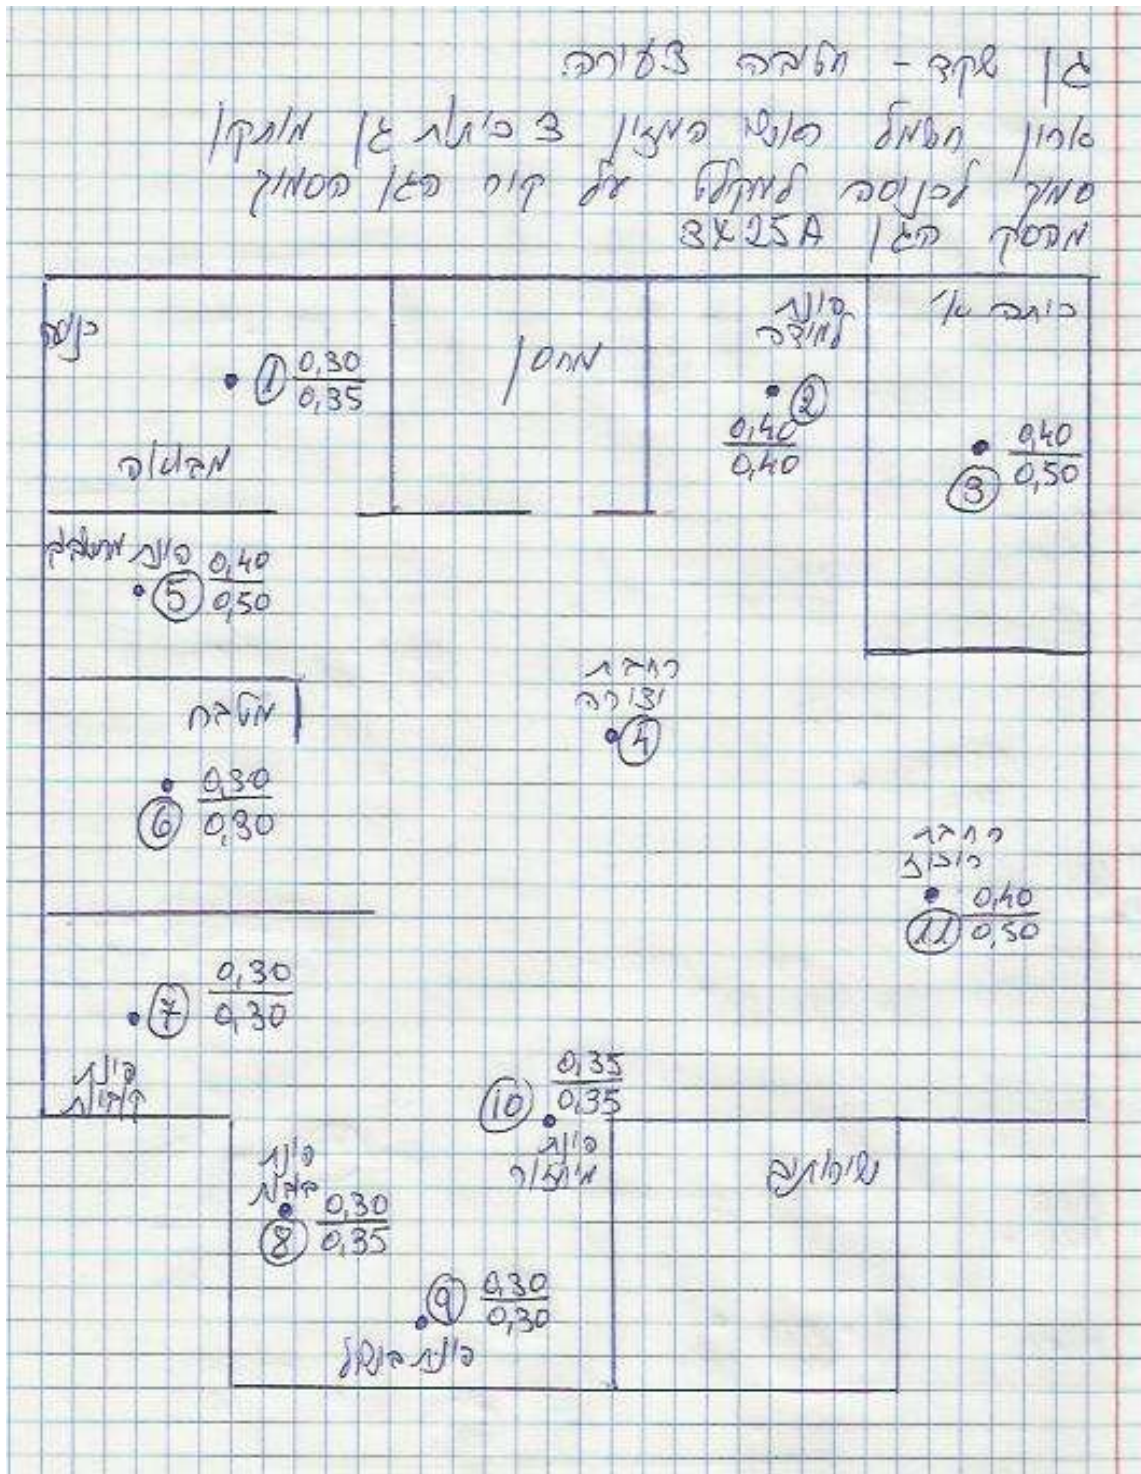 גן שקד - חטיבה צעירה.
ארון חשמל ראשי המזין 3 כיתות גן מותקן
סמוך לכניסה למקלט על קיר הגן הסמוך
מפסק הגן 3X25A
כניסה
① 0,30
0,35
מבואה
מחסן
פינת
למידה
②
0,40
0,40
כיתה א'
③ 0,40
0,50
פינת משחק
⑤ 0,40
0,50
רחבת
יצירה
④
מטבח
⑥ 0,30
0,30
רחבת
ריכוז
⑪ 0,40
0,50
⑦ 0,30
0,30
פינת
קוביות
⑩ 0,35
0,35
פינת
פינת
בובות
⑧ 0,30
0,35
⑨ 0,30
0,30
פינת בישול
שירותים